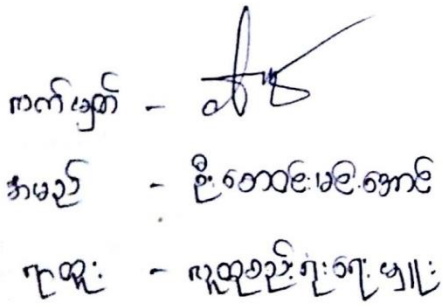 လက်မှတ် -
အမည် - ဦးဘောဝင်းမင်းအောင်
ရာထူး - လူထုစည်းရုံးရေးမှူး